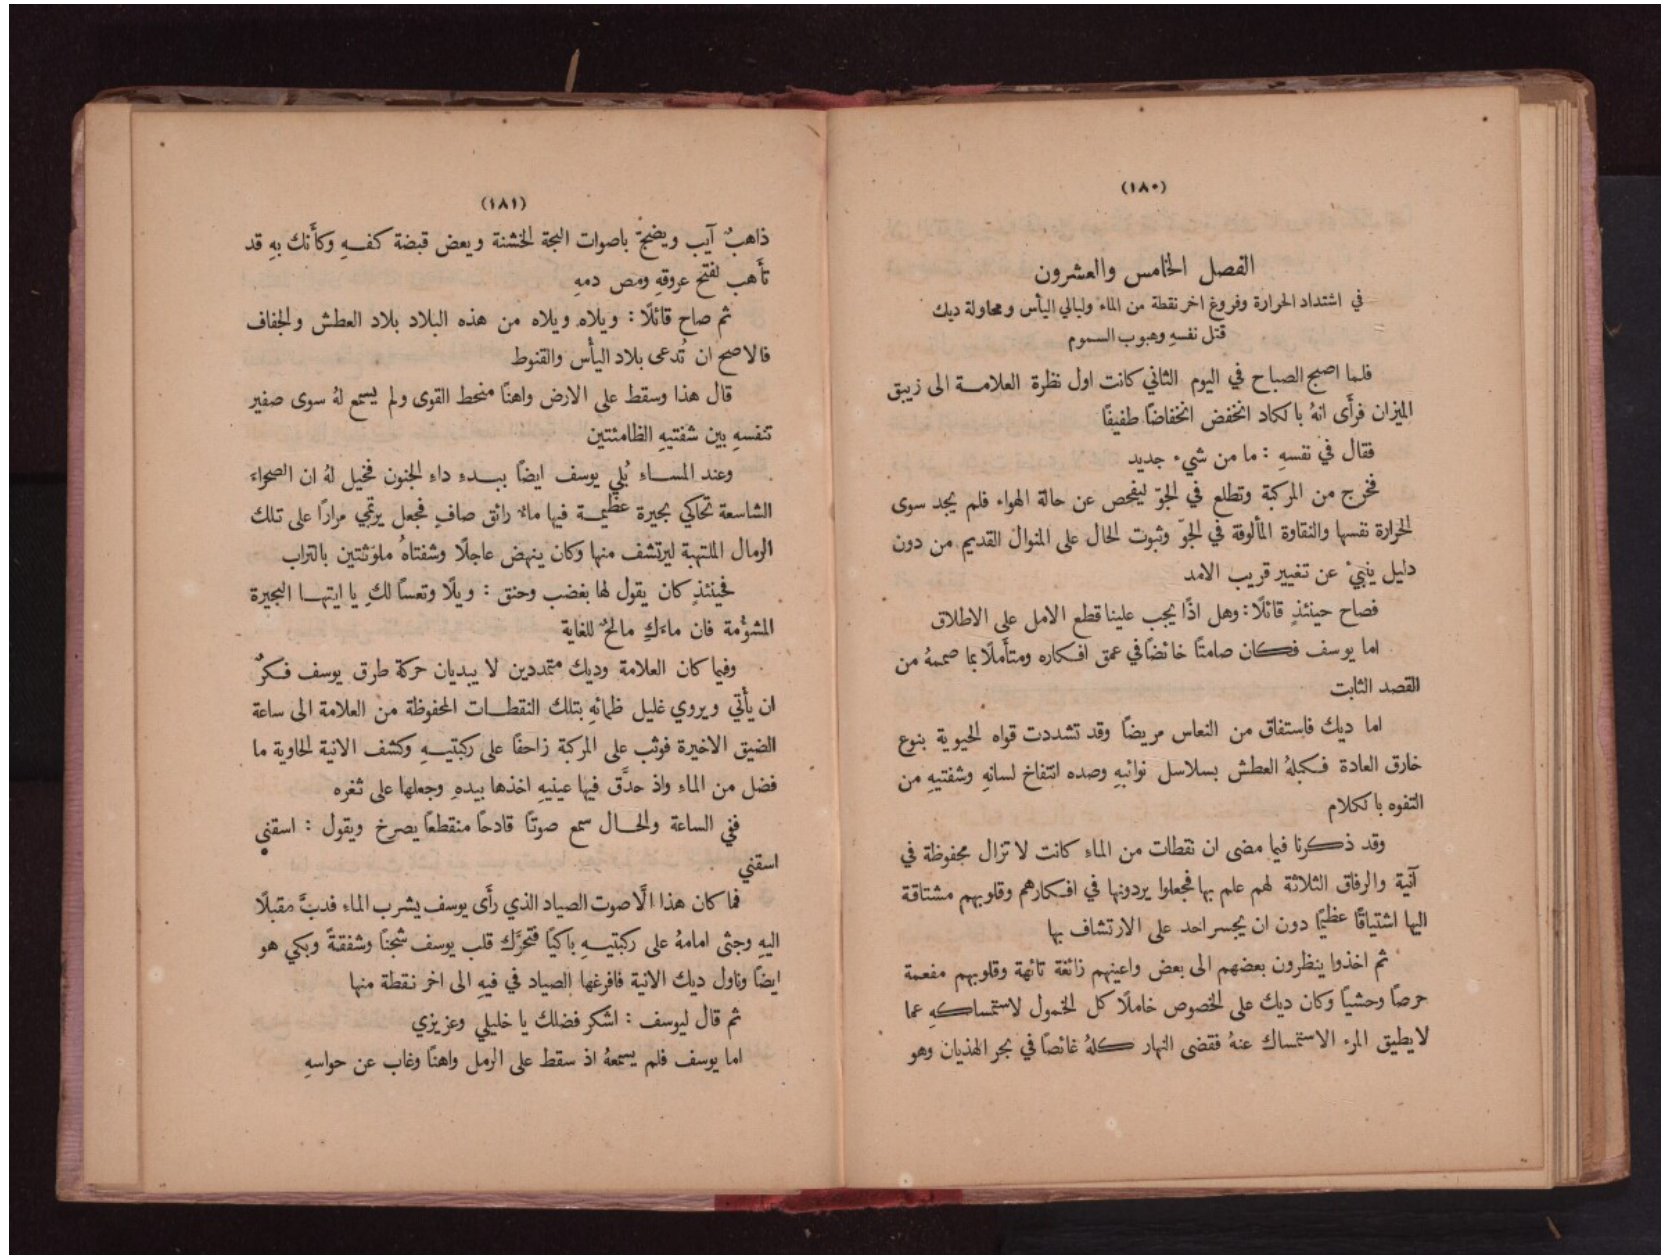 (١٨٠)
الفصل الخامس والعشرون
في اشتداد الحرارة وفروغ اخر نقطة من الماء وليالي اليأس ومحاولة ديك
قتل نفسهِ وهبوب السموم
فلما اصبح الصباح في اليوم الثاني كانت اول نظرة العلامة الى زيبق
الميزان فرأَى انهُ بالكاد انخفض انخفاضًا طفيفًا
فقال في نفسهِ : ما من شيء جديد
فخرج من المركبة وتطلع في الجوّ ليفحص عن حالة الهواء فلم يجد سوى
الحرارة نفسها والنقاوة المألوفة في الجوّ وثبوت الحال على المنوال القديم من دون
دليل ينبيْ عن تغيير قريب الامد
فصاح حينئذٍ قائلًا : وهل اذًا يجب علينا قطع الامل على الاطلاق
اما يوسف فكان صامتًا خائضًا في عمق افكاره ومتأَملًا بما صممهُ من
القصد الثابت
اما ديك فاستفاق من النعاس مريضًا وقد تشددت قواه الحيوية بنوع
خارق العادة فكبلهُ العطش بسلاسل نوائبهِ وصده انتفاخ لسانهِ وشفتيهِ من
التفوه بالكلام
وقد ذكرنا فيما مضى ان نقطات من الماء كانت لا تزال محفوظة في
آنية والرفاق الثلاثة لهم علم بها فجعلوا يردونها في افكارهم وقلوبهم مشتاقة
اليها اشتياقًا عظيمًا دون ان يجسر احد على الارتشاف بها
ثم اخذوا ينظرون بعضهم الى بعض واعينهم زائغة تائهة وقلوبهم مفعمة
حرصًا وحشيًا وكان ديك على الخصوص خاملًا كل الخمول لاستمساكهِ عما
لا يطيق المرء الاستمساك عنهُ فقضى النهار كلهُ غائصًا في بحر الهذيان وهو
(١٨١)
ذاهبٌ آيب ويضجّ باصوات البحة الخشنة ويعض قبضة كفهِ وكأَنك بهِ قد
تأَهب لفتح عروقهِ ومص دمهِ
ثم صاح قائلًا : ويلاه ويلاه من هذه البلاد بلاد العطش والجفاف
فالاصح ان تُدعى بلاد اليأْس والقنوط
قال هذا وسقط على الارض واهنًا منحط القوى ولم يسمع لهُ سوى صفير
تنفسهِ بين شفتيهِ الظامئتين
وعند المساء بُلي يوسف ايضًا ببدء داء الجنون فخيل لهُ ان الصحراء
الشاسعة تحاكي بحيرة عظيمة فيها ماءٌ رائق صافٍ فجعل يرتمي مرارًا على تلك
الرمال الملتهبة ليرتشف منها وكان ينهض عاجلًا وشفتاهُ ملوثتين بالتراب
فحينئذٍ كان يقول لها بغضب وحنق : ويلًا وتعسًا لكِ يا ايتها البحيرة
المشؤُمة فان ماءَكِ مالحٌ للغاية
وفيما كان العلامة وديك متمددين لا يبديان حركة طرق يوسف فكرٌ
ان يأتي ويروي غليل ظمائهِ بتلك النقطات المحفوظة من العلامة الى ساعة
الضيق الاخيرة فوثب على المركبة زاحفًا على ركبتيهِ وكشف الانية الحاوية ما
فضل من الماء واذ حدَّق فيها عينيهِ اخذها بيدهِ وجعلها على ثغره
ففي الساعة والحال سمع صوتًا قادحًا منقطعًا يصرخ ويقول : اسقني
اسقني
فما كان هذا الَّا صوت الصياد الذي رأَى يوسف يشرب الماء فدبَّ مقبلًا
اليهِ وجثى امامهُ على ركبتيهِ باكيًا فتحرَّك قلب يوسف شجنًا وشفقةً وبكى هو
ايضًا وناول ديك الانية فافرغها الصياد في فيهِ الى اخر نقطة منها
ثم قال ليوسف : اشكر فضلك يا خليلي وعزيزي
اما يوسف فلم يسمعهُ اذ سقط على الرمل واهنًا وغاب عن حواسهِ